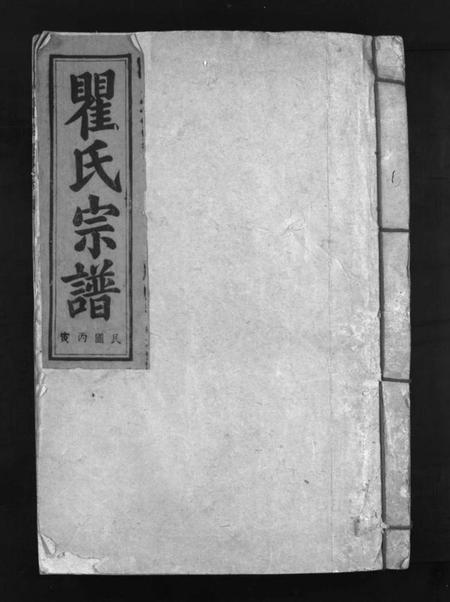 瞿氏宗譜
民國丙寅